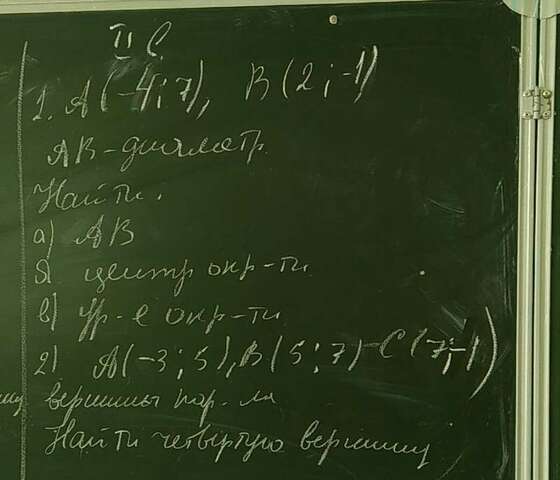 II С.
1. А(-4; 7), В(2; -1)
АВ-диаметр.
Найти:
а) АВ
б центр окр-ти
в) Ур-е окр-ти
2) А(-3; 5), В(5; 7) С(7; -1)
вершины пар-ла
Найти четвёртую вершину